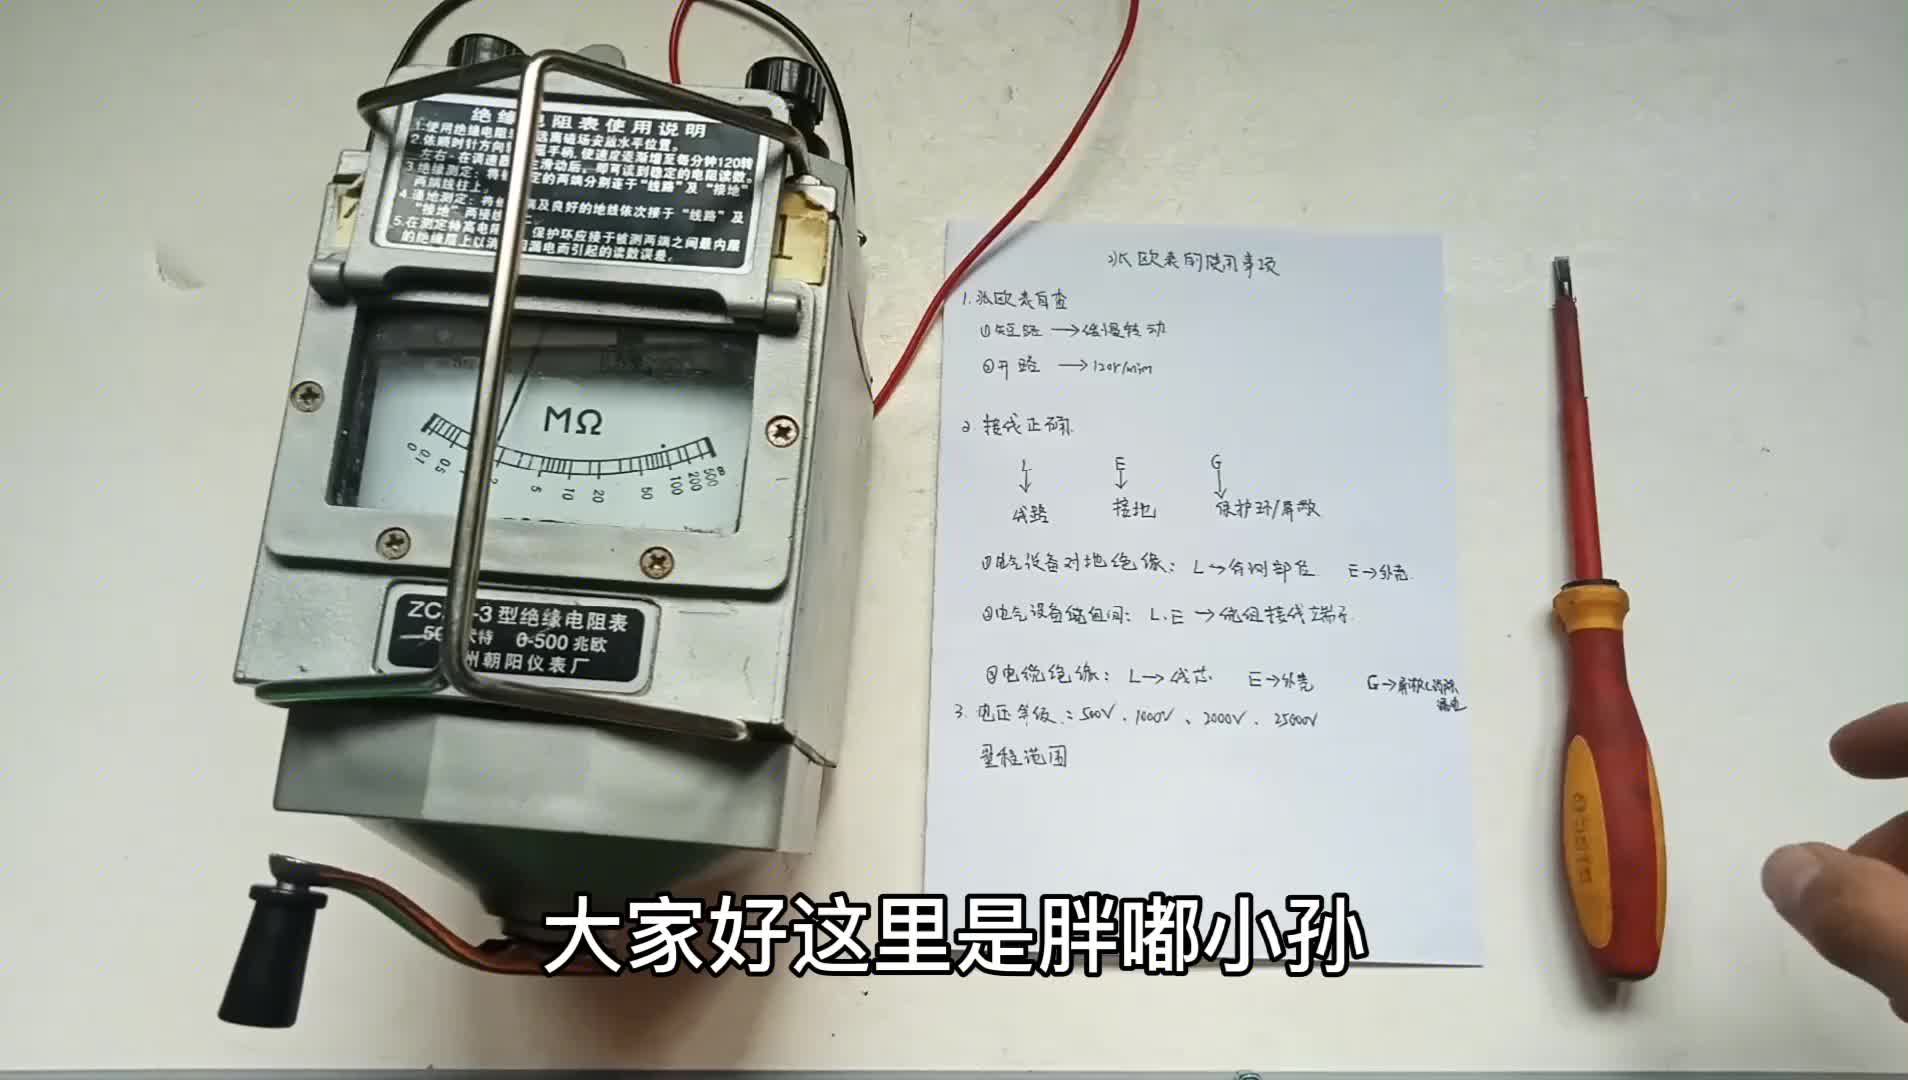 绝缘电阻表使用说明
1.使用绝缘电阻 远离磁场安放水平位置。
2.依顺时针方向 手柄,使速度逐渐增至每分钟120转
左右,在调速器 生滑动后,即可读到稳定的电阻读数。
3.绝缘测定:将被 定的两端分别连于“线路”及“接地”
两端线柱上。
4.通地测定:将被 端及良好的地线依次接于“线路”及
“接地”两接线
5.在测定特高电阻 保护环应接于被测两端之间最内层
的绝缘层上以消 因漏电而引起的读数误差。
MΩ
0 0.1 0.5 2 5 10 20 50 100 200 500 ∞
ZC -3型绝缘电阻表
50 伏特 0-500 兆欧
州朝阳仪表厂
兆欧表的使用事项
1.兆欧表自查
①短路→缓慢转动
②开路→120r/min
2.接线正确.
L E G
↓ ↓ ↓
线路 接地 保护环/屏蔽
①电气设备对地绝缘:L→待测部位 E→外壳.
②电气设备绕组间:L、E→绕组接线端子.
③电缆绝缘:L→线芯. E→外壳 G→屏蔽(消除
漏电
3.电压等级:500V、1000V、2000V、2500V
量程范围
大家好这里是胖嘟小孙